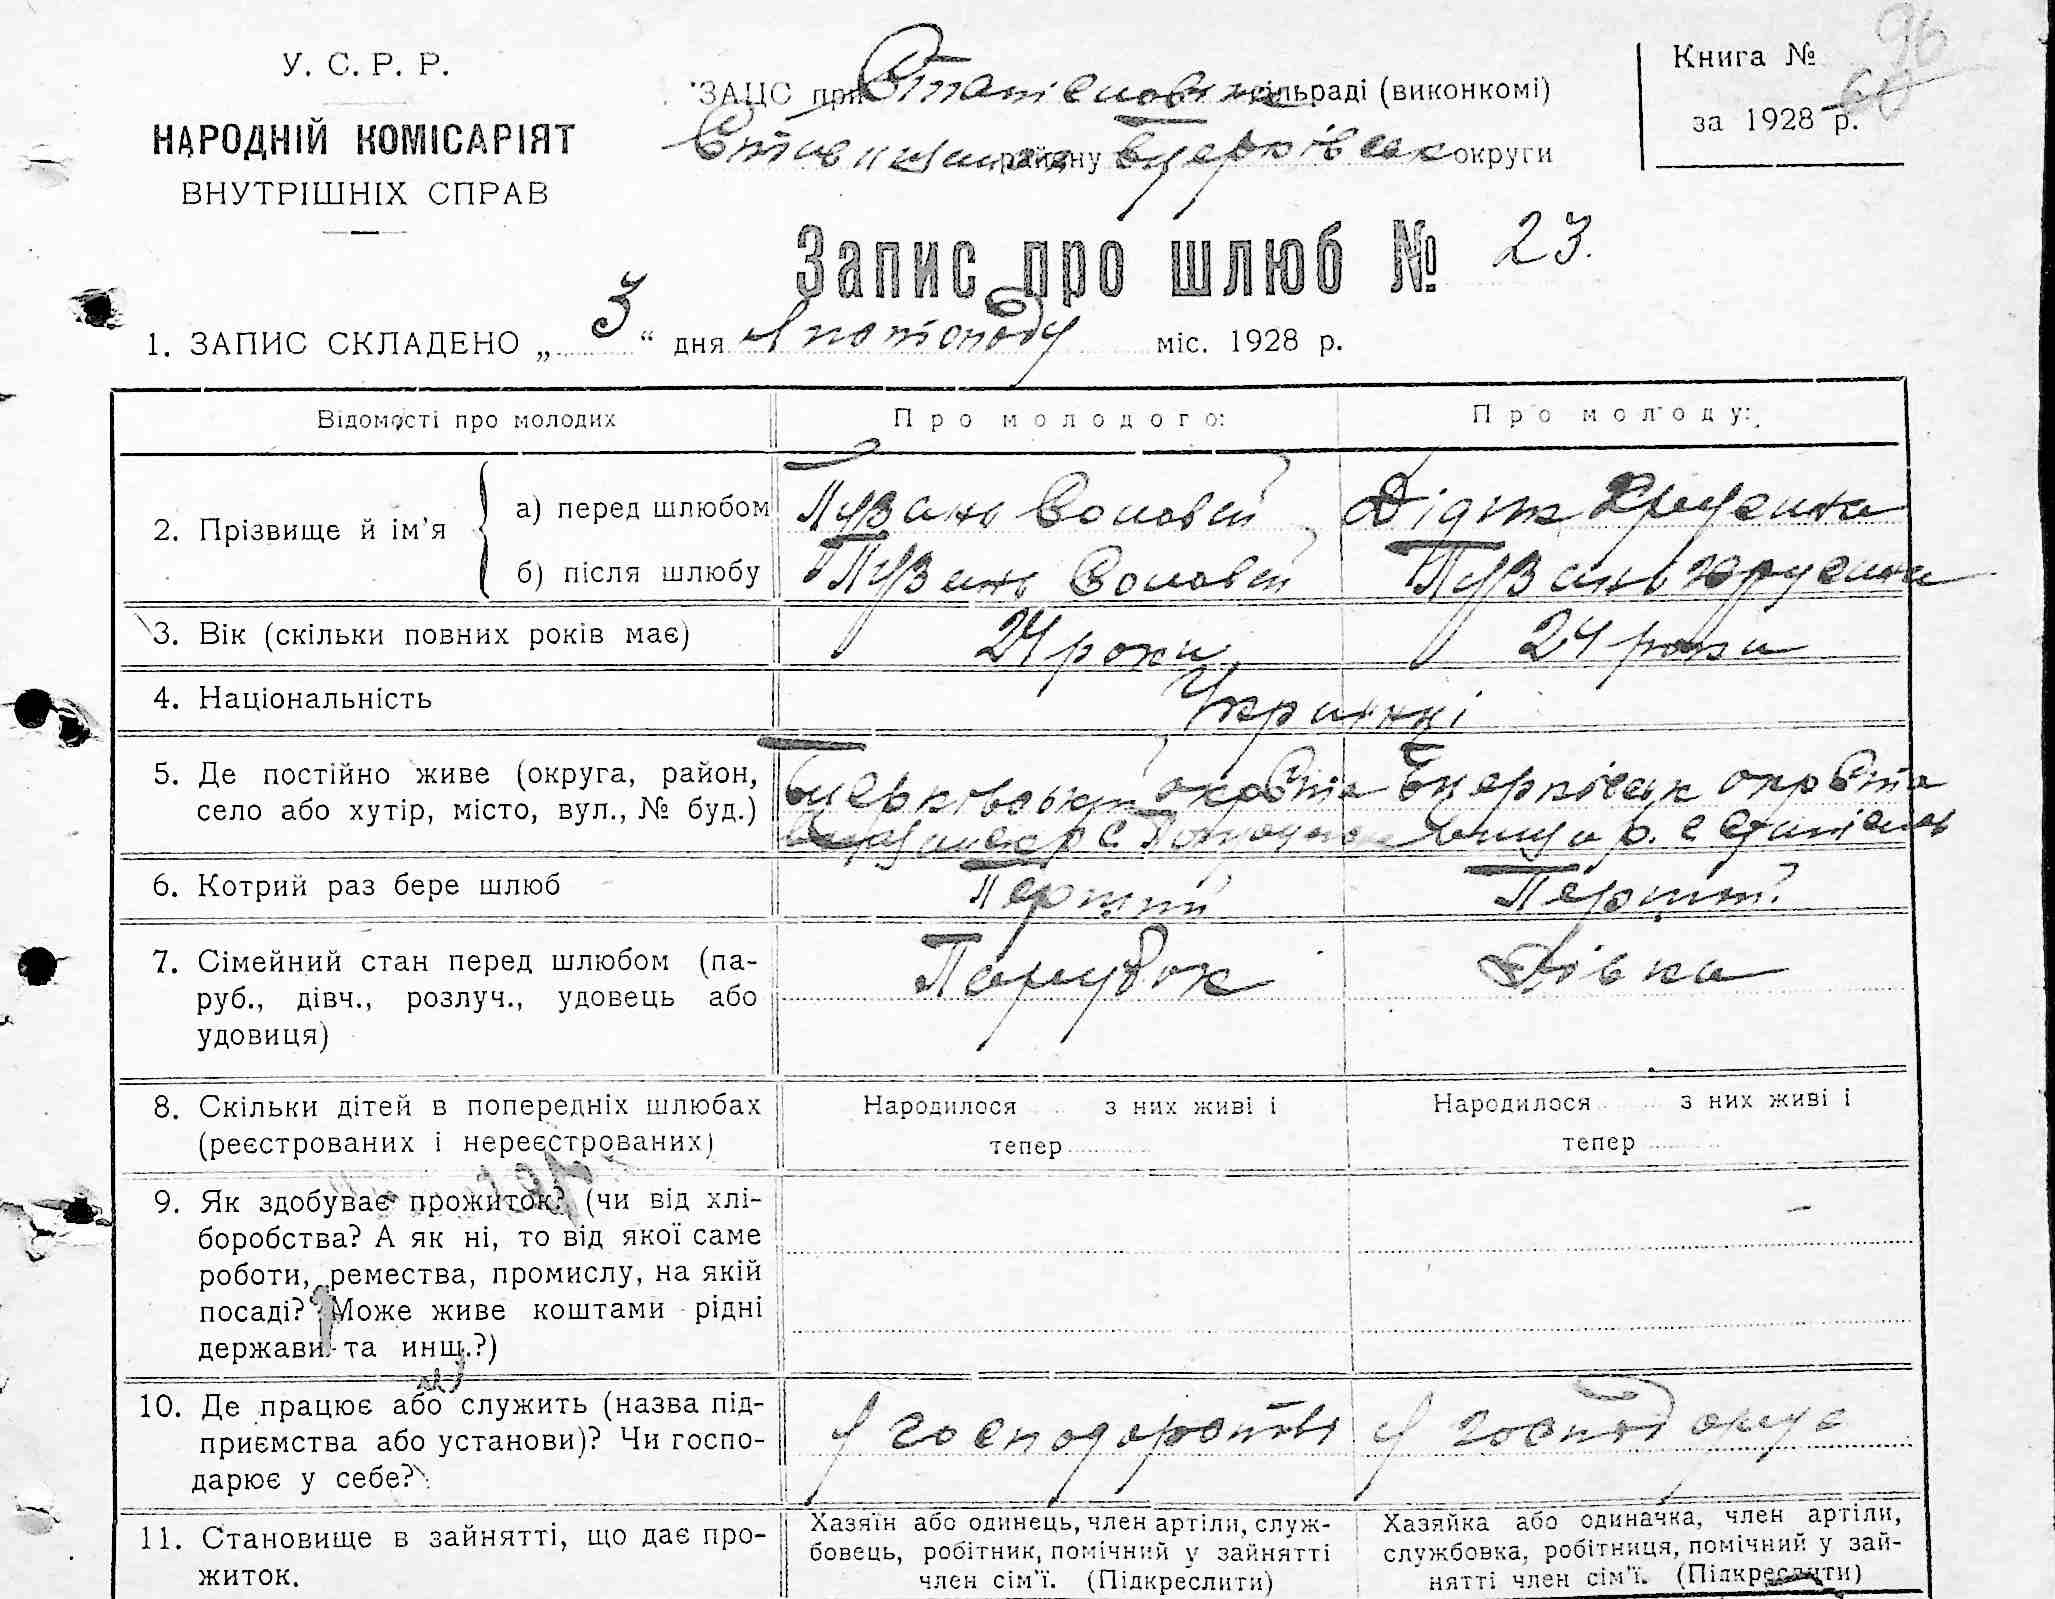 У. С. Р. Р.
НАРОДНІЙ КОМІСАРІЯТ
ВНУТРІШНІХ СПРАВ
ЗАЦС при сільраді (виконкомі)
району Бцерківськ округи
Книга № 96
за 1928 р.
Запис про шлюб № 23.
1. ЗАПИС СКЛАДЕНО „ 3 “ дня Листопаду міс. 1928 р.
Відомості про молодих
Про молодого:
Про молоду:
2. Прізвище й ім'я
а) перед шлюбом Пузань Соловей
б) після шлюбу Пузань Соловей Пузань
3. Вік (скільки повних років має) 24 роки 24 роки
4. Національність Українці
5. Де постійно живе (округа, район, село або хутір, місто, вул., № буд.)
6. Котрий раз бере шлюб Перший Перший
7. Сімейний стан перед шлюбом (па-
руб., дівч., розлуч., удовець або
удовиця)
Парубок Дівка
8. Скільки дітей в попередніх шлюбах
(реєстрованих і нереєстрованих)
Народилося з них живі і
тепер
Народилося з них живі і
тепер
9. Як здобуває прожиток? (чи від хлі-
боробства? А як ні, то від якої саме
роботи, ремества, промислу, на якій
посаді? Може живе коштами рідні
держави та инш.?)
10. Де працює або служить (назва під-
приємства або установи)? Чи госпо-
дарює у себе?
У господарстві У господарує
11. Становище в зайнятті, що дає про-
житок.
Хазяїн або одинець, член артіли, служ-
бовець, робітник, помічний у зайнятті
член сім'ї. (Підкреслити)
Хазяйка або одиначка, член артіли,
службовка, робітниця, помічний у зай-
нятті член сім'ї. (Підкреслити)